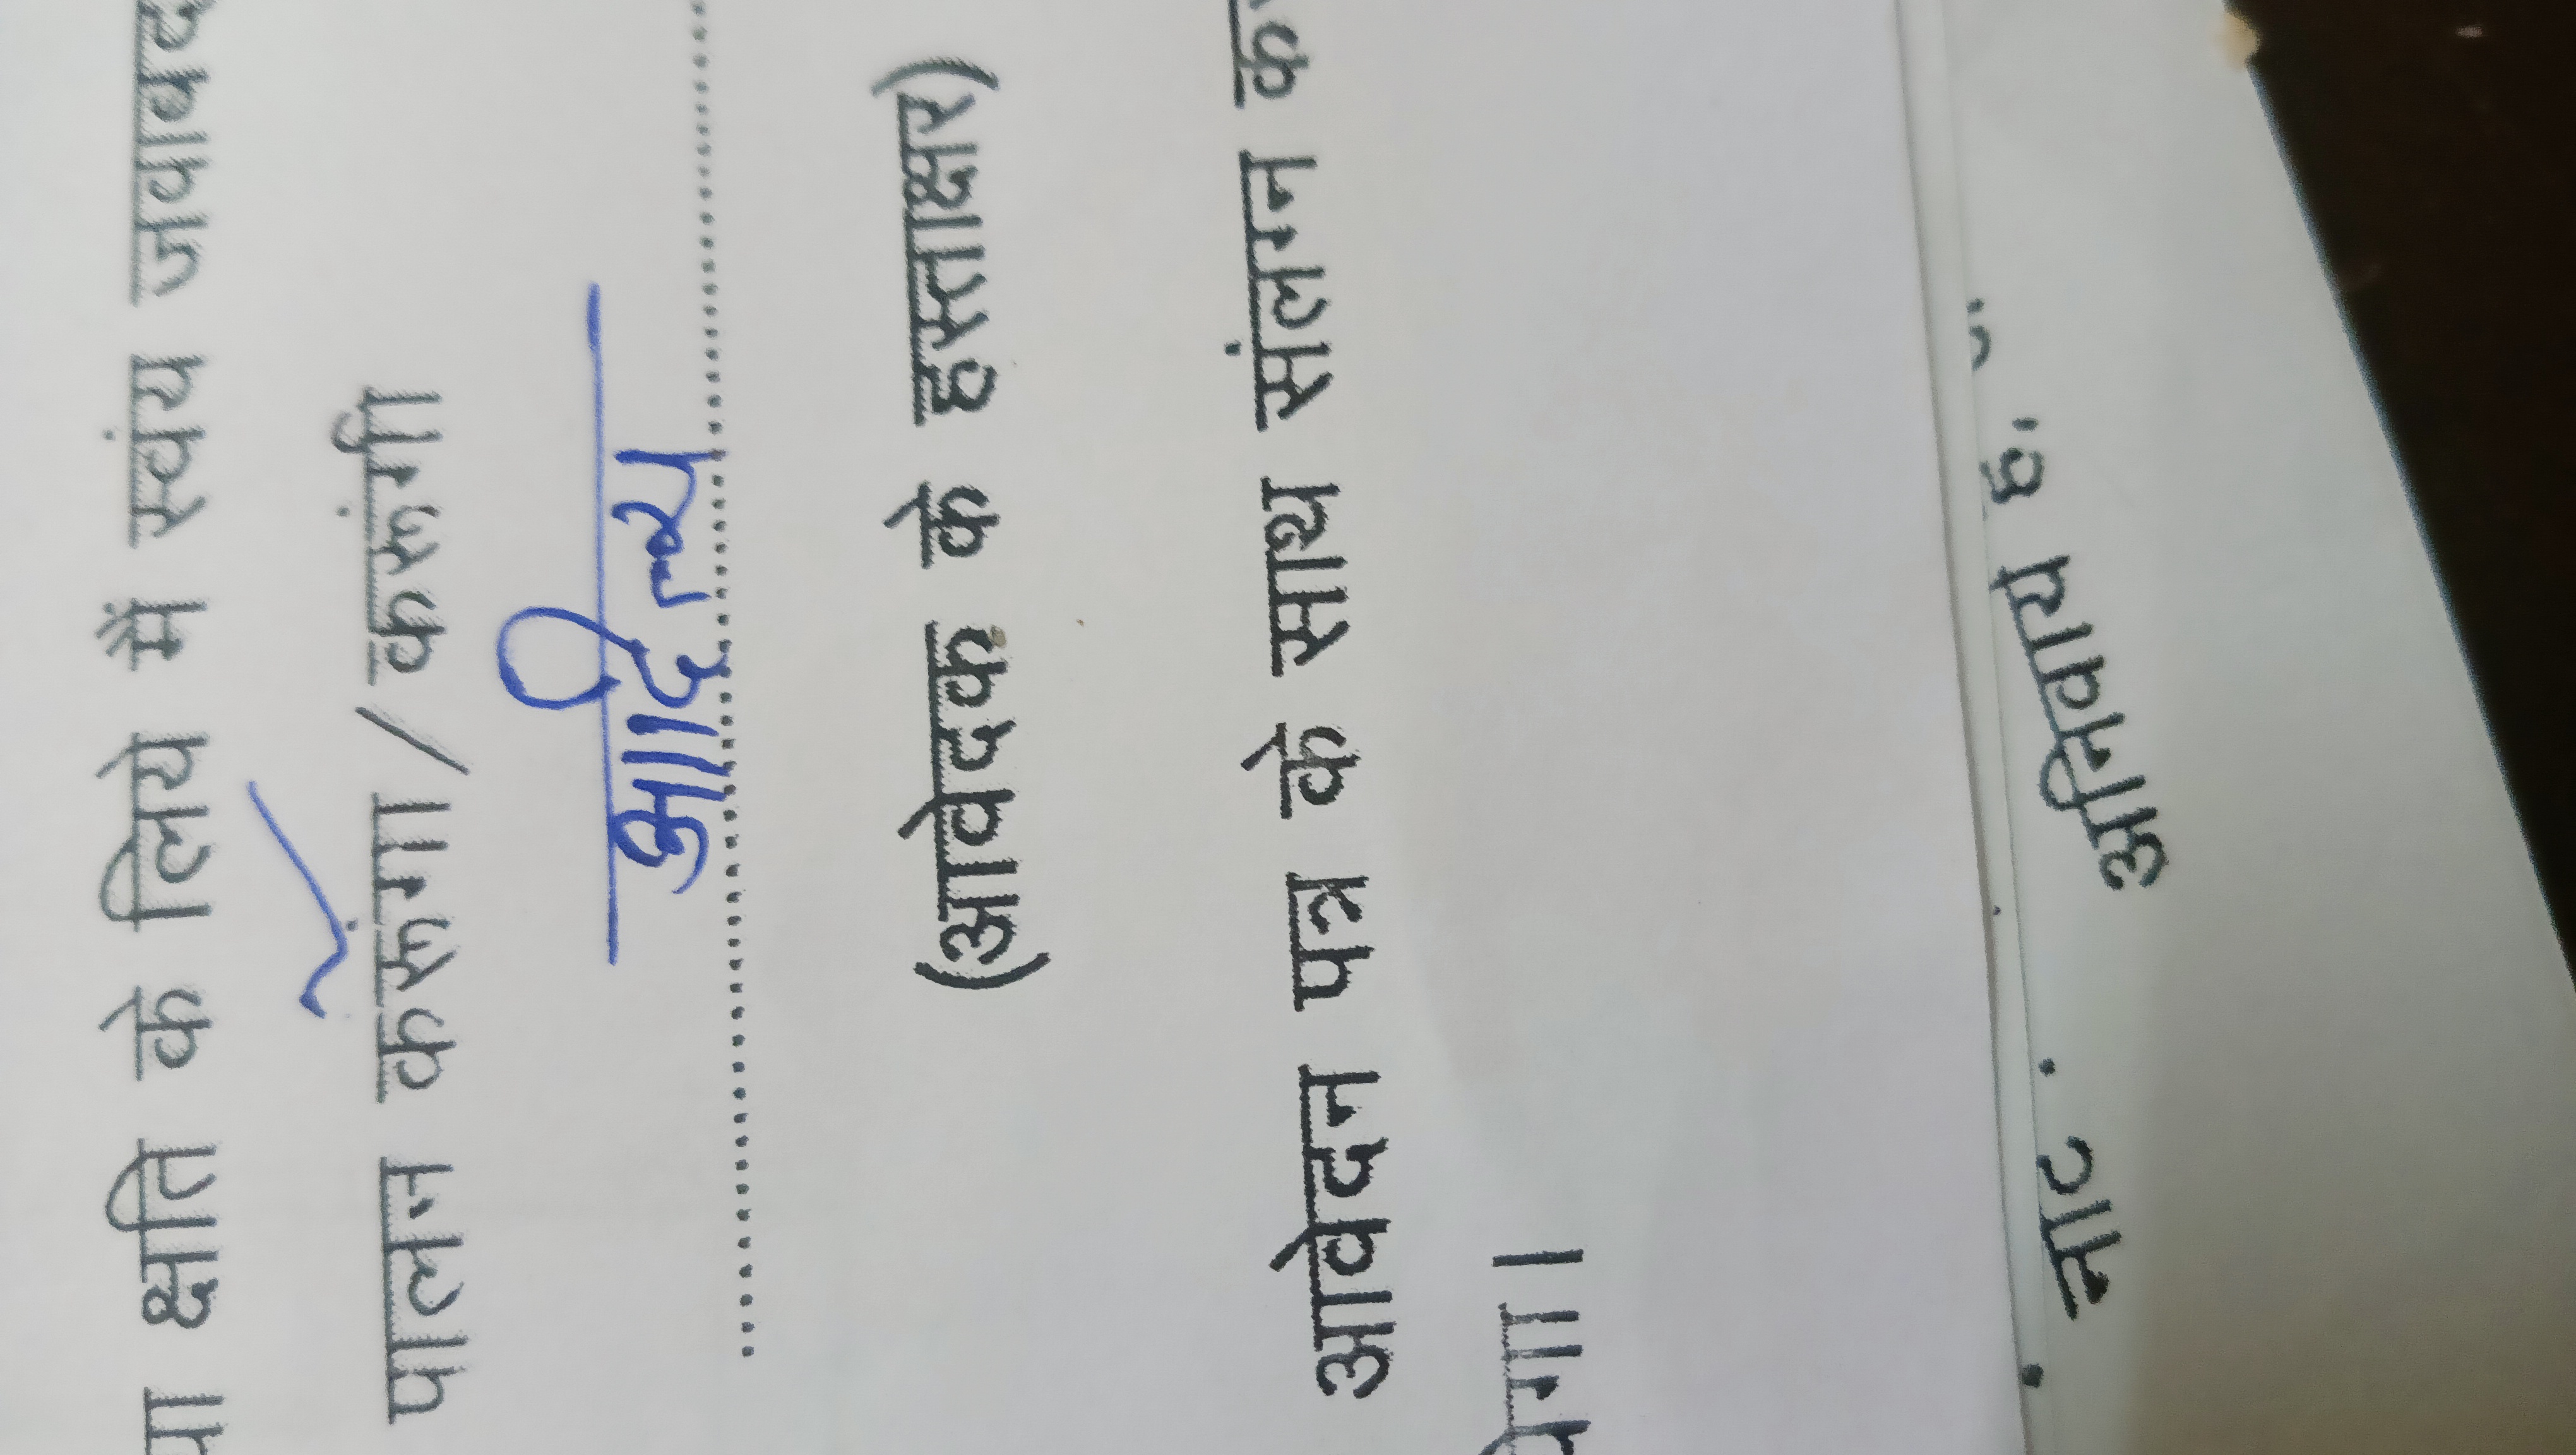 क्षति के लिये मैं स्वंय
पालन करूंगा / करूंगी
आदित्य
(आवेदक के हस्ताक्षर)
आवेदन पत्र के साथ संलग्न
अनिवार्य है.